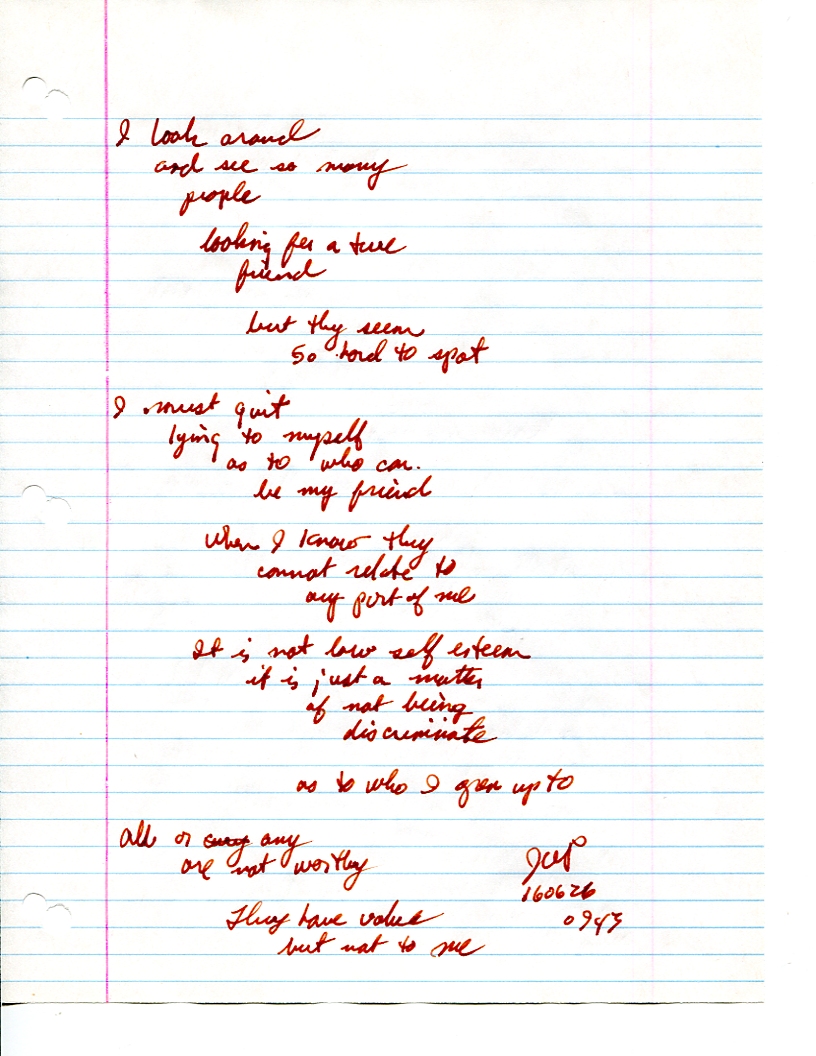 I look around
and see so many
people
looking for a true
friend
but they seem
so hard to spot
I must quit
lying to myself
as to who can
be my friend
When I know they
cannot relate to
any part of me
It is not low self esteem
it is just a matter
of not being
discriminate
as to who I open up to
All or any
are not worthy
They have value
but not to me
160626
0943